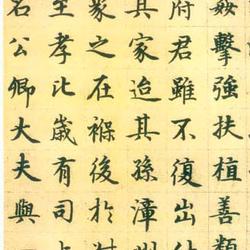 姦擊強扶植善類
府君雖不復出
其家迨其孫漳州
之在褓後於
至孝比歲有司上
名公卿大夫與